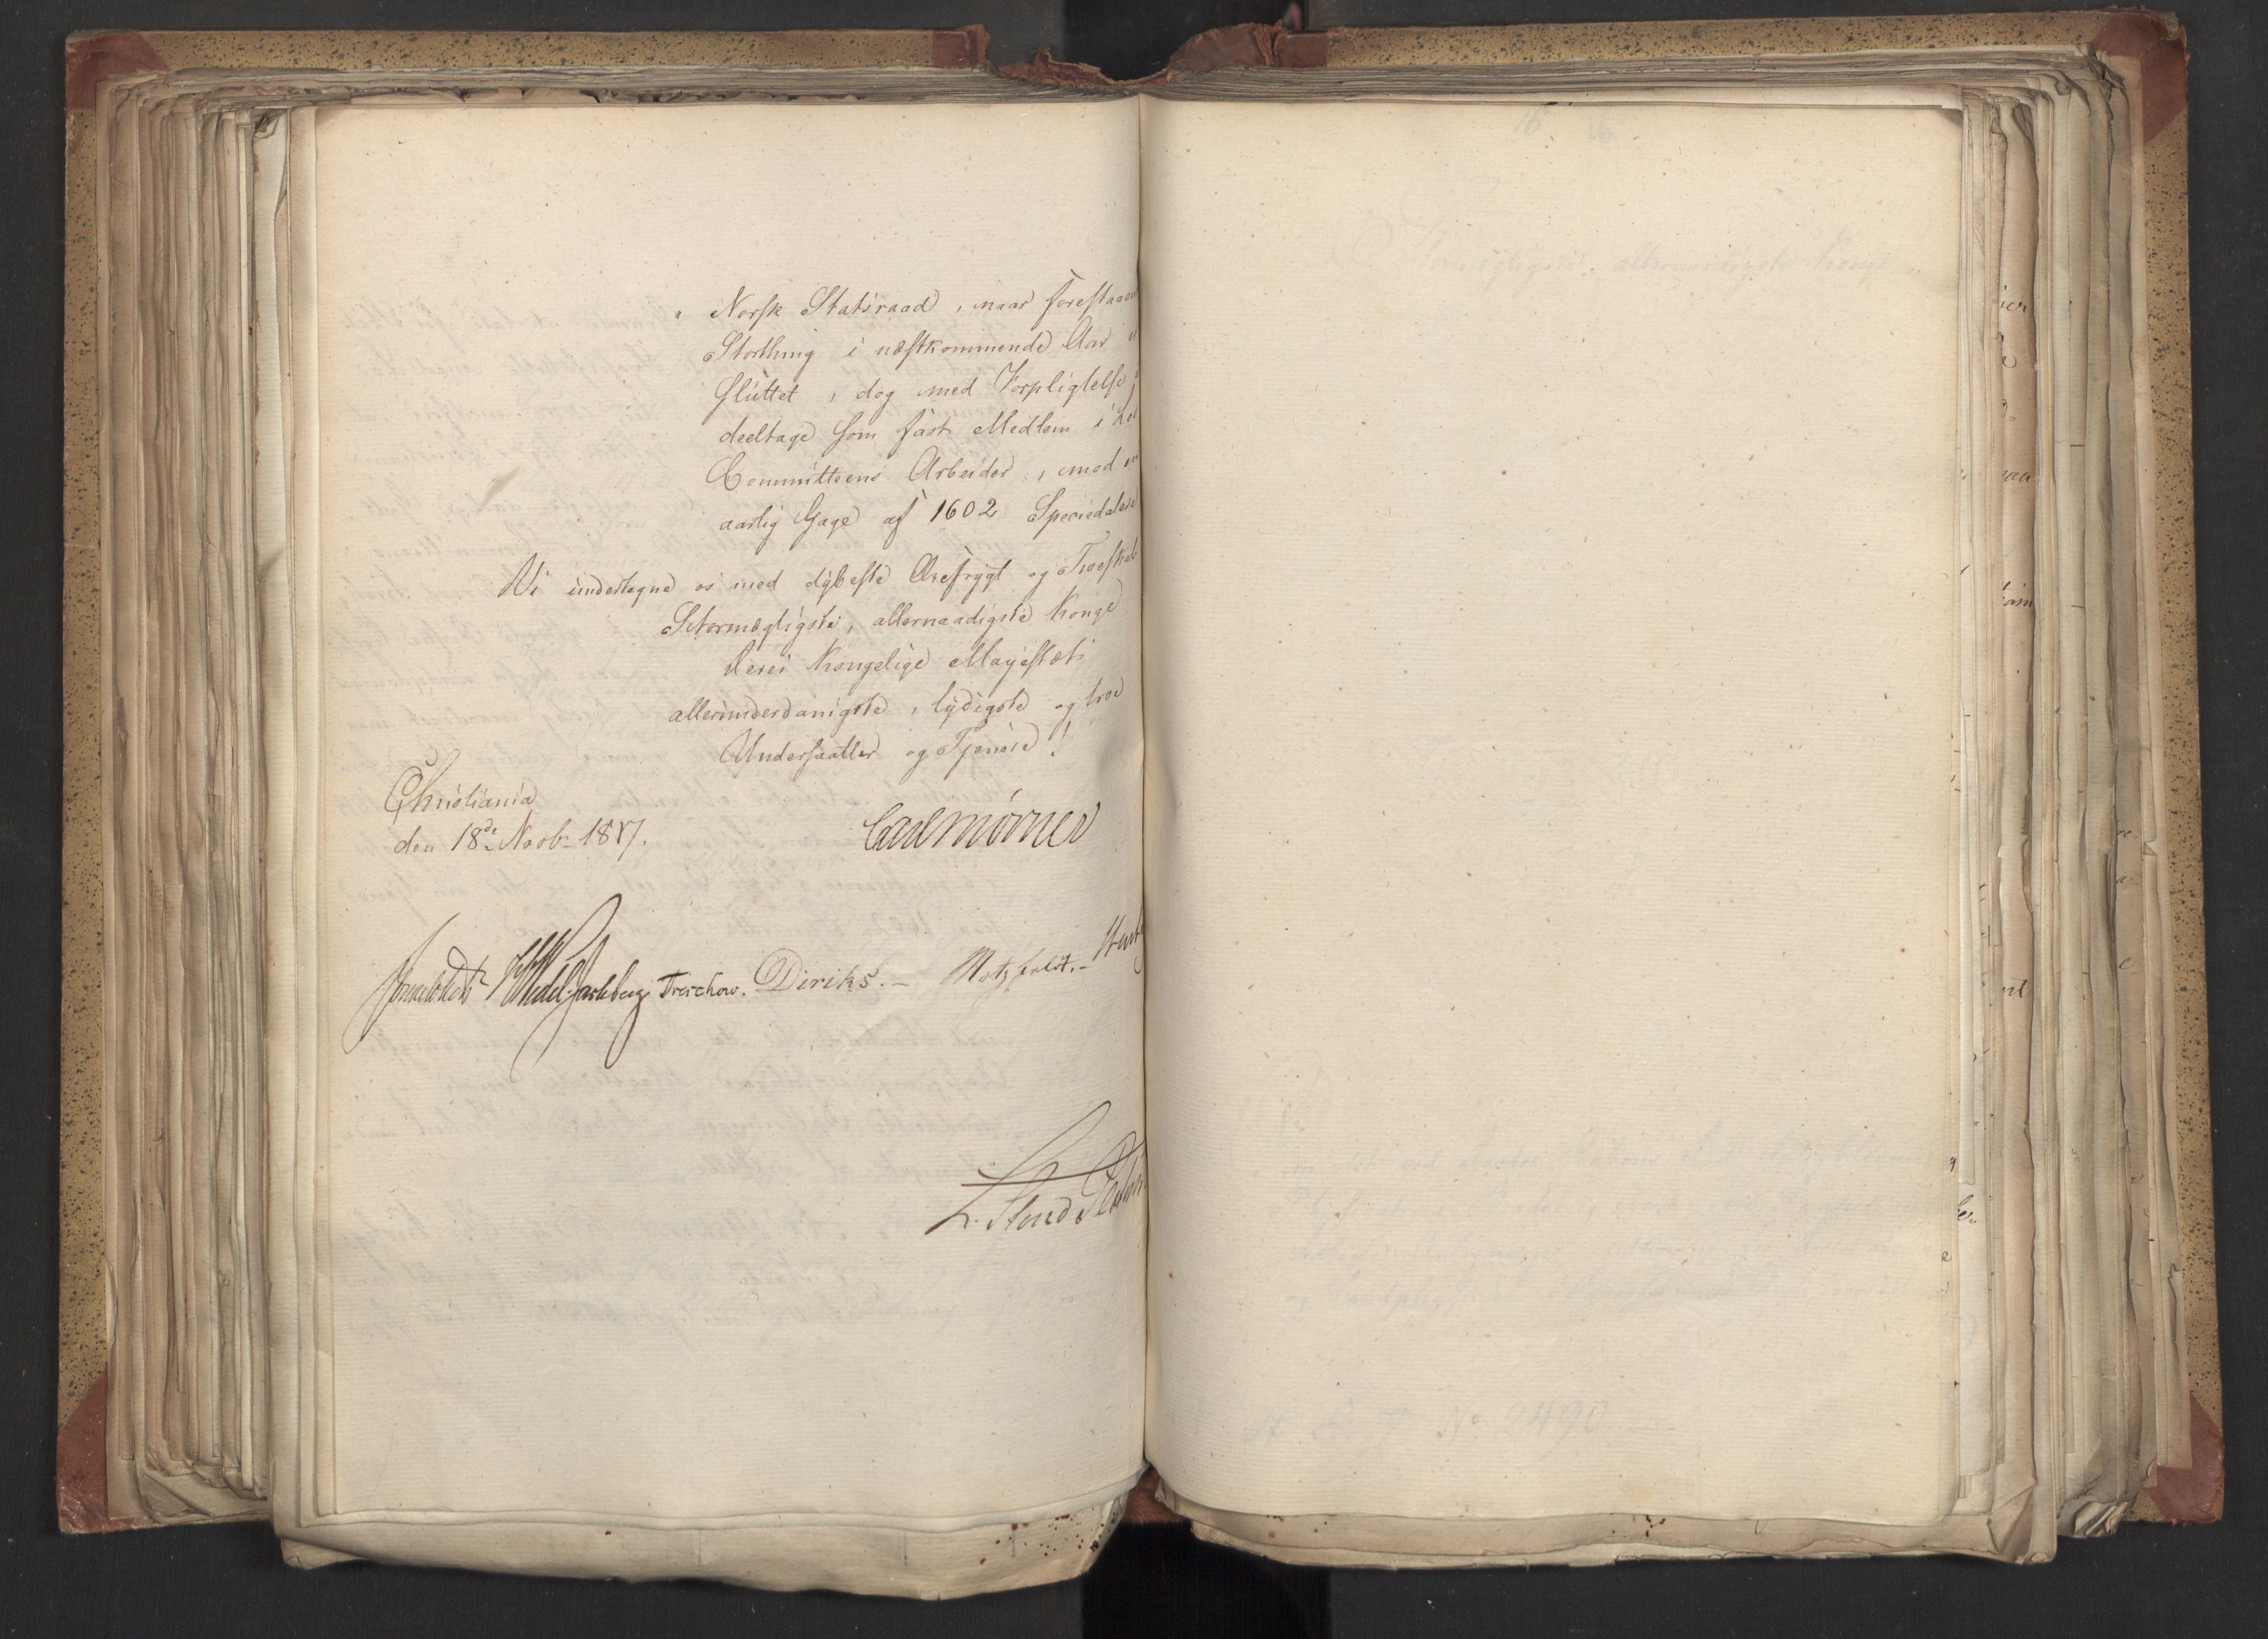 " Norsk Statsraad, naar forestaaen
Storthing i næstkommende Aar
sluttet, dog med Forpligtelse
deeltage som fast Medlem i Lov
Committeens Arbeider, med en
aarlig Gage af 1602 Speciedaler
Vi undertegne os med dybeste Ærefrygt og Troeskab
Stormægtigste, allernaadigste Konge
Deres Kongelige Mayestæts
allerunderdanigste, lydigste og troe
Undersaatter og Tjenere!
Christiania
den 18de Novbr 1817.
Carl Mörner
Sommerhielm Wedel Jarlsberg Treschow. Diriks. – Motzfeldt. –
L. Stoud Platou